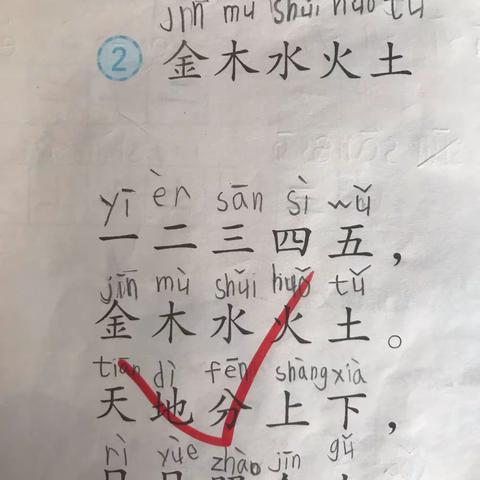 jīn mù shuǐ huǒ tǔ
② 金木水火土
yī èr sān sì wǔ
一二三四五，
jīn mù shuǐ huǒ tǔ
金木水火土。
tiān dì fēn shàng xià
天地分上下，
rì yùe zhào jīn gǔ
日月照今古